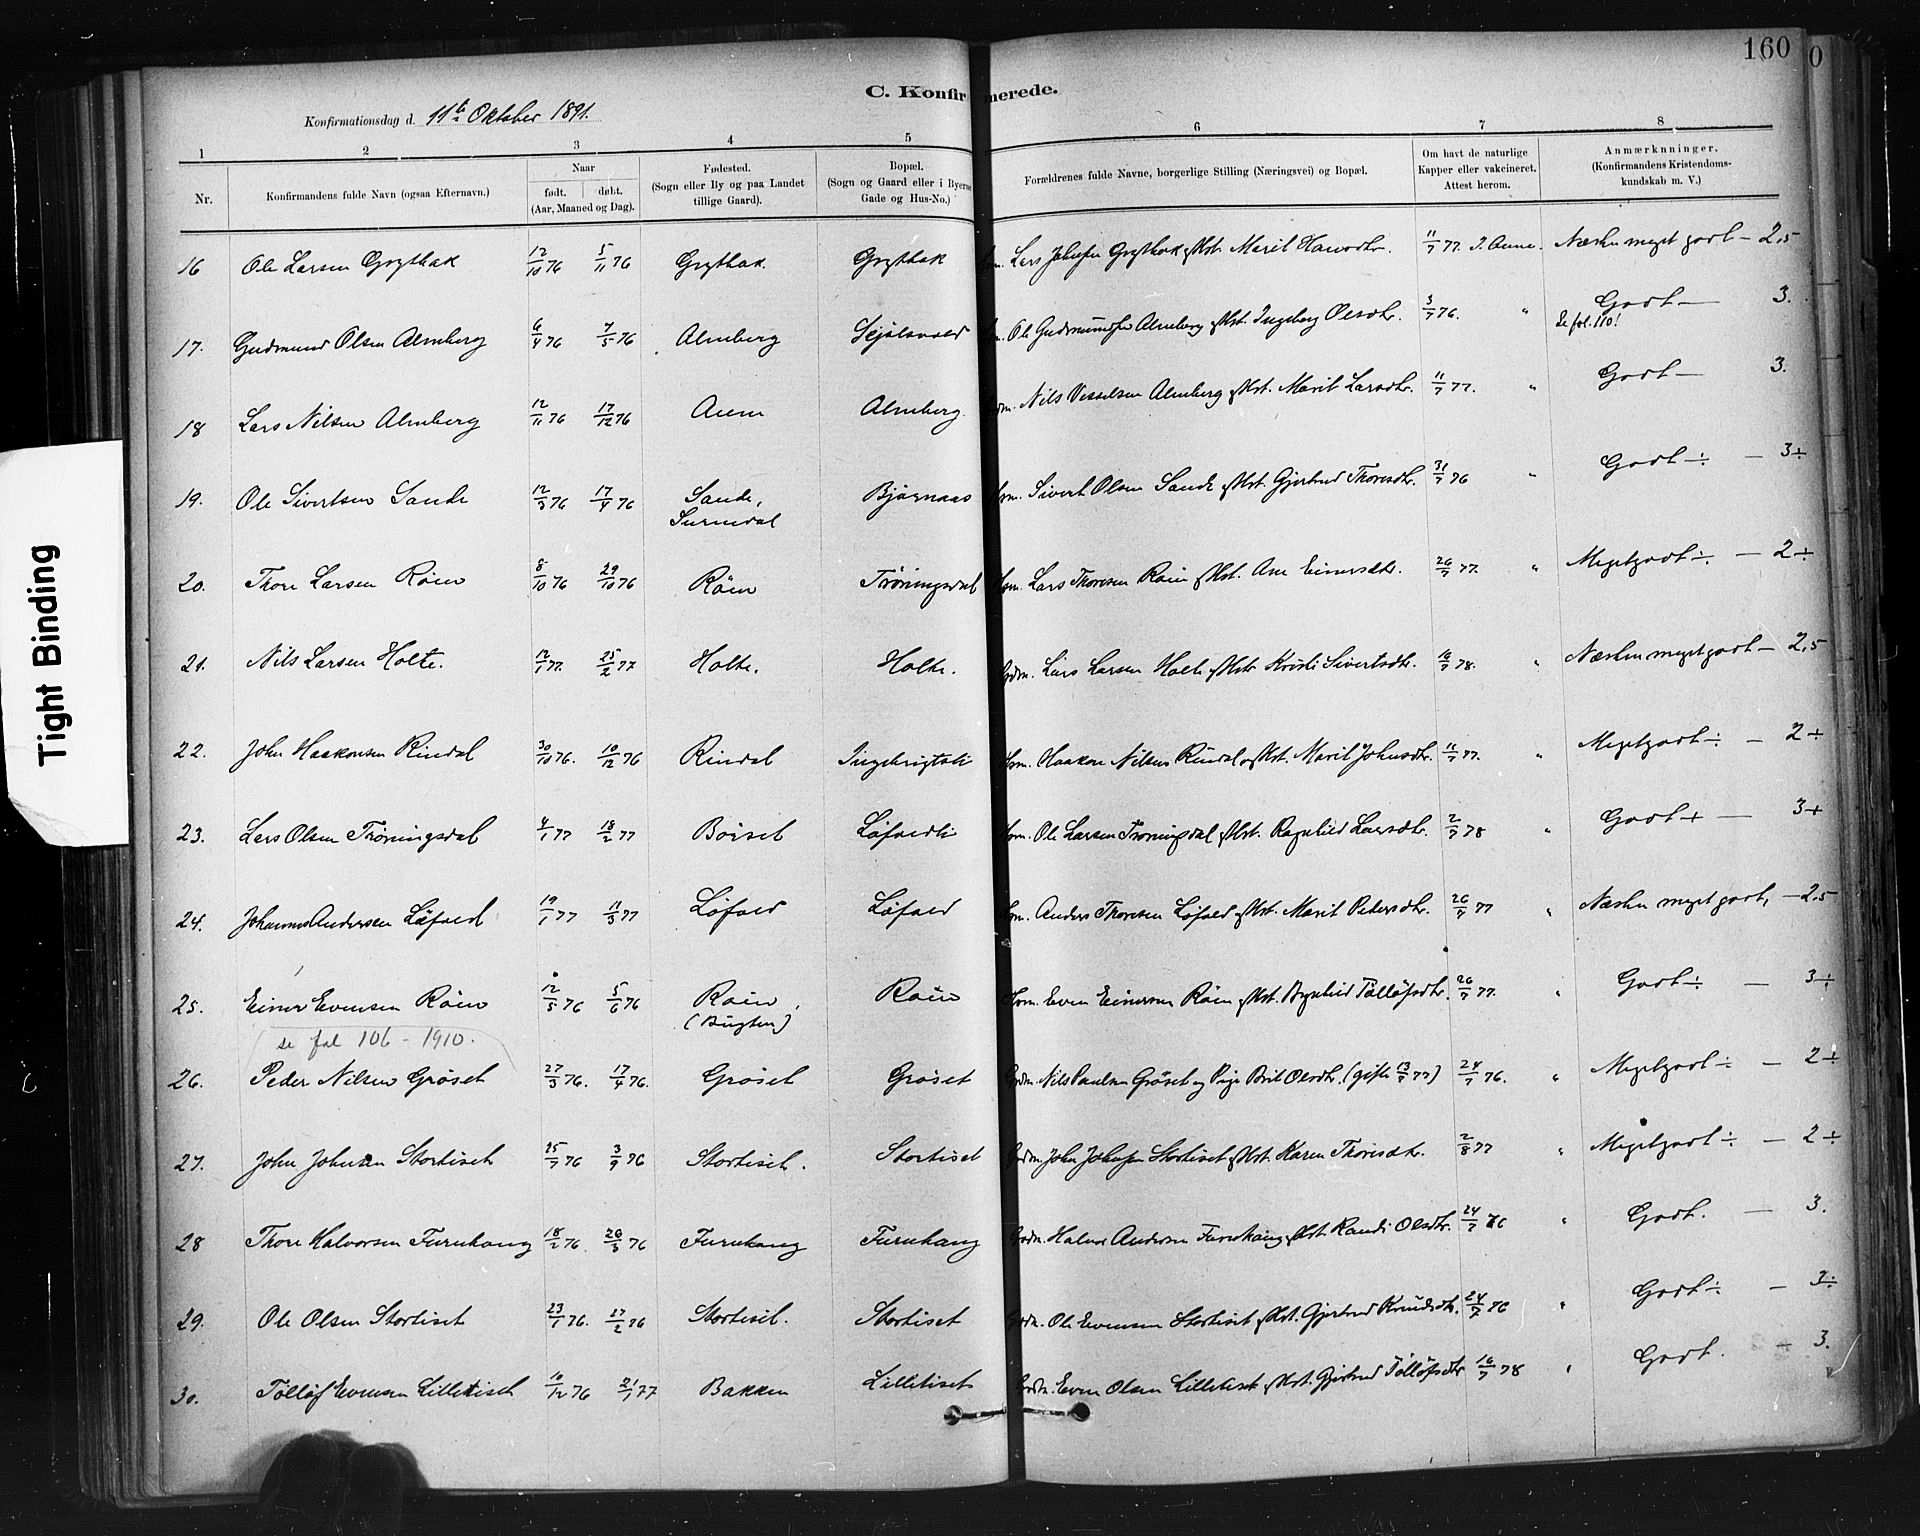 160
0
C. Konfirmerede.
Konfirmationsdag d. 11te Oktober 1891.
1 2 3 4 5 6 7 8
Nr. Konfirmandens fulde Navn (ogsaa Efternavn.) Naar født. døbt. (Aar, Maaned og Dag). Fødested. (Sogn eller By og paa Landet tillige Gaard). Bopæl. (Sogn og Gaard eller i Byerne Gade og Hus-No.) Forældrenes fulde Navne, borgerlige Stilling (Næringsvei) og Bopæl. Om havt de naturlige Kapper eller vakcineret. Attest herom. Anmærknninger. (Konfirmandens Kristendoms-kundskab m. V.)
16 Ole Larsen Grythak 12/10 76 5/11 76 Grythak. Grythak Lars Johnsen Grythak og Kst. Marit Hansdtr. 11/7 77. J. Aune. Næsten meget godt — 2,5
17. Gudmund Olsen Almberg 6/4 76 7/5 76 Almberg Ole Gudmundsen Almberg og Kst. Ingeborg Olsdtr. 3/7 76. " Godt — 3.
Se fol. 110!
18 Lars Nilsen Almberg 12/11 76 17/12 76 Aune Almberg. Gdm. Nils Vesselsen Almberg og Kst. Marit Larsdtr. 11/7 77. " Godt — 3.
19. Ole Sivertsen Sande 12/3 76 17/4 76 Sande, Surendal Bjørnaas Hsm. Sivert Olsen Sande og Kst. Gjertrud Thoresdtr. 31/7 76 " Godt ÷ — 3÷
20. Thore Larsen Røen 8/10 76 29/10 76 Røen Trøningsdal Hsm. Lars Thoresen Røen og Kst. Ane Einersdtr. 26/7 77. " Megetgodt ÷ — 2÷
21. Nils Larsen Holte. 12/1 77. 25/2 77 Holte. Holte. Gdm. Lars Larsen Holte og Kst. Kristi Sivertsdtr. 16/7 78. " Næsten megetgodt — 2,5
22. John Haakonsen Rindal 30/10 76. 10/12 76 Rindal Ingebrigtsli Hsm. Haakon Nilsen Rindal og Kst. Marit Johnsdtr. 11/7 77. " Megetgodt ÷ — 2÷
23. Lars Olsen Trøningsdal 4/1 77 18/2 77 Bøiset Løfaldli Hsm. Ole Larsen Trøningsdal og Kst. Ragnhild Larsdtr. 2/7 78 " Godt + — 3+
24. Johannes Andersen Løfald 19/1 77 11/3 77 Løfald Løfald Hsm. Anders Thoresen Løfald og Kst. Marit Pedersdtr. 26/7 77 " Næsten meget godt, — 2,5
25. Einer Evensen Røen 12/5 76 5/6 76 Røen, (Bugten) Røen Hsm. Even Einersen Røen og Kst. Ragnhild Tølløfsdtr. 26/7 77. " Godt ÷ — 3÷
se fol 106 - 1910.
26. Peder Nilsen Grøset 27/3 76. 17/4 76. Grøset Grøset Gdm. Nils Paulsen Grøset og Pige Brit Olsdtr. (gifte 13/7 77) 24/7 76. " Megetgodt ÷ — 2÷
27. John Johnsen Stortiset 25/7 76 3/9 76 Stortiset. Stortiset Gdm. John Johnsen Stortiset og Kst. Karen Thoresdtr. 2/8 77 " Megetgodt ÷ — 2÷
28 Thore Halvorsen Furuhaug 18/2 76. 26/3 76 Furuhaug Furuhaug Gdm. Halvor Andersen Furuhaug og Kst. Randi Olsdtr. 24/7 76 " Godt. — 3.
29. Ole Olsen Stortiset 23/1 76. 27/2 76 Stortiset. Stortiset Gdm. Ole Evensen Stortiset og Kst. Gjertrud Knudsdtr. 24/7 76 " Godt ÷ — 3÷
30. Tølløf Evensen Lilletiset 10/12 76 21/1 77 Bakken Lilletiset Gdm. Even Olsen Lilletiset og Kst. Gjertrud Tølløfsdtr 16/7 78 " Godt. — 3.
Tight Binding